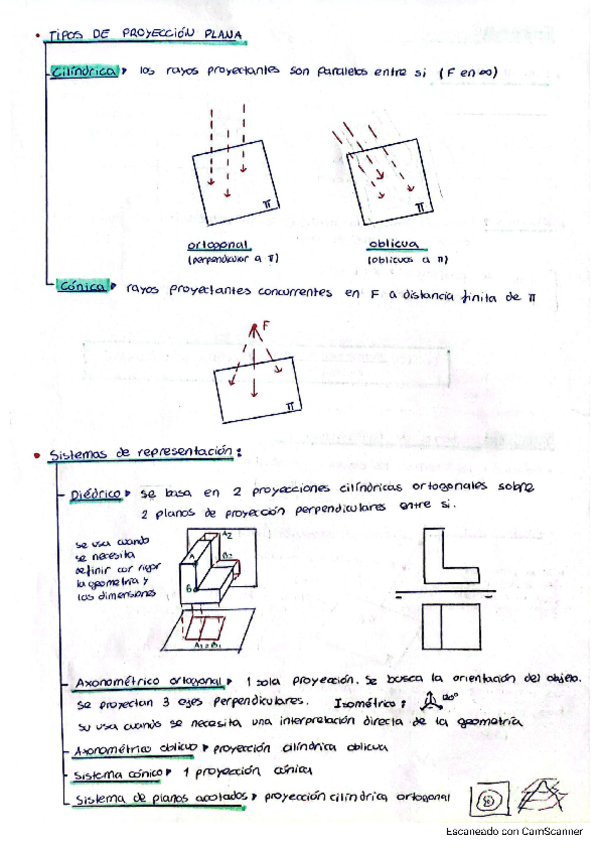 • TIPOS DE PROYECCIÓN PLANA
Cilíndrica los rayos proyectantes son paralelos entre si (F en ∞)
π
π
ortogonal
(perpendicular a π)
oblicua
(oblicuos a π)
Cónica rayos proyectantes concurrentes en F a distancia finita de π
F
π
• Sistemas de representación:
Diédrico se basa en 2 proyecciones cilíndricas ortogonales sobre
2 planos de proyección perpendiculares entre si.
se usa cuando
se necesita
definir con rigor
la geometría y
las dimensiones
A2
B2
A
B
A1≡B1
Axonométrico ortogonal 1 sola proyección. Se busca la orientación del objeto.
se proyectan 3 ejes perpendiculares. Isométrico: 120°
su usa cuando se necesita una interpretación directa de la geometría
Axonométrico oblicuo proyección cilíndrica oblicua
Sistema cónico 1 proyección cónica
Sistema de planos acotados proyección cilíndrica ortogonal
Escaneado con CamScanner